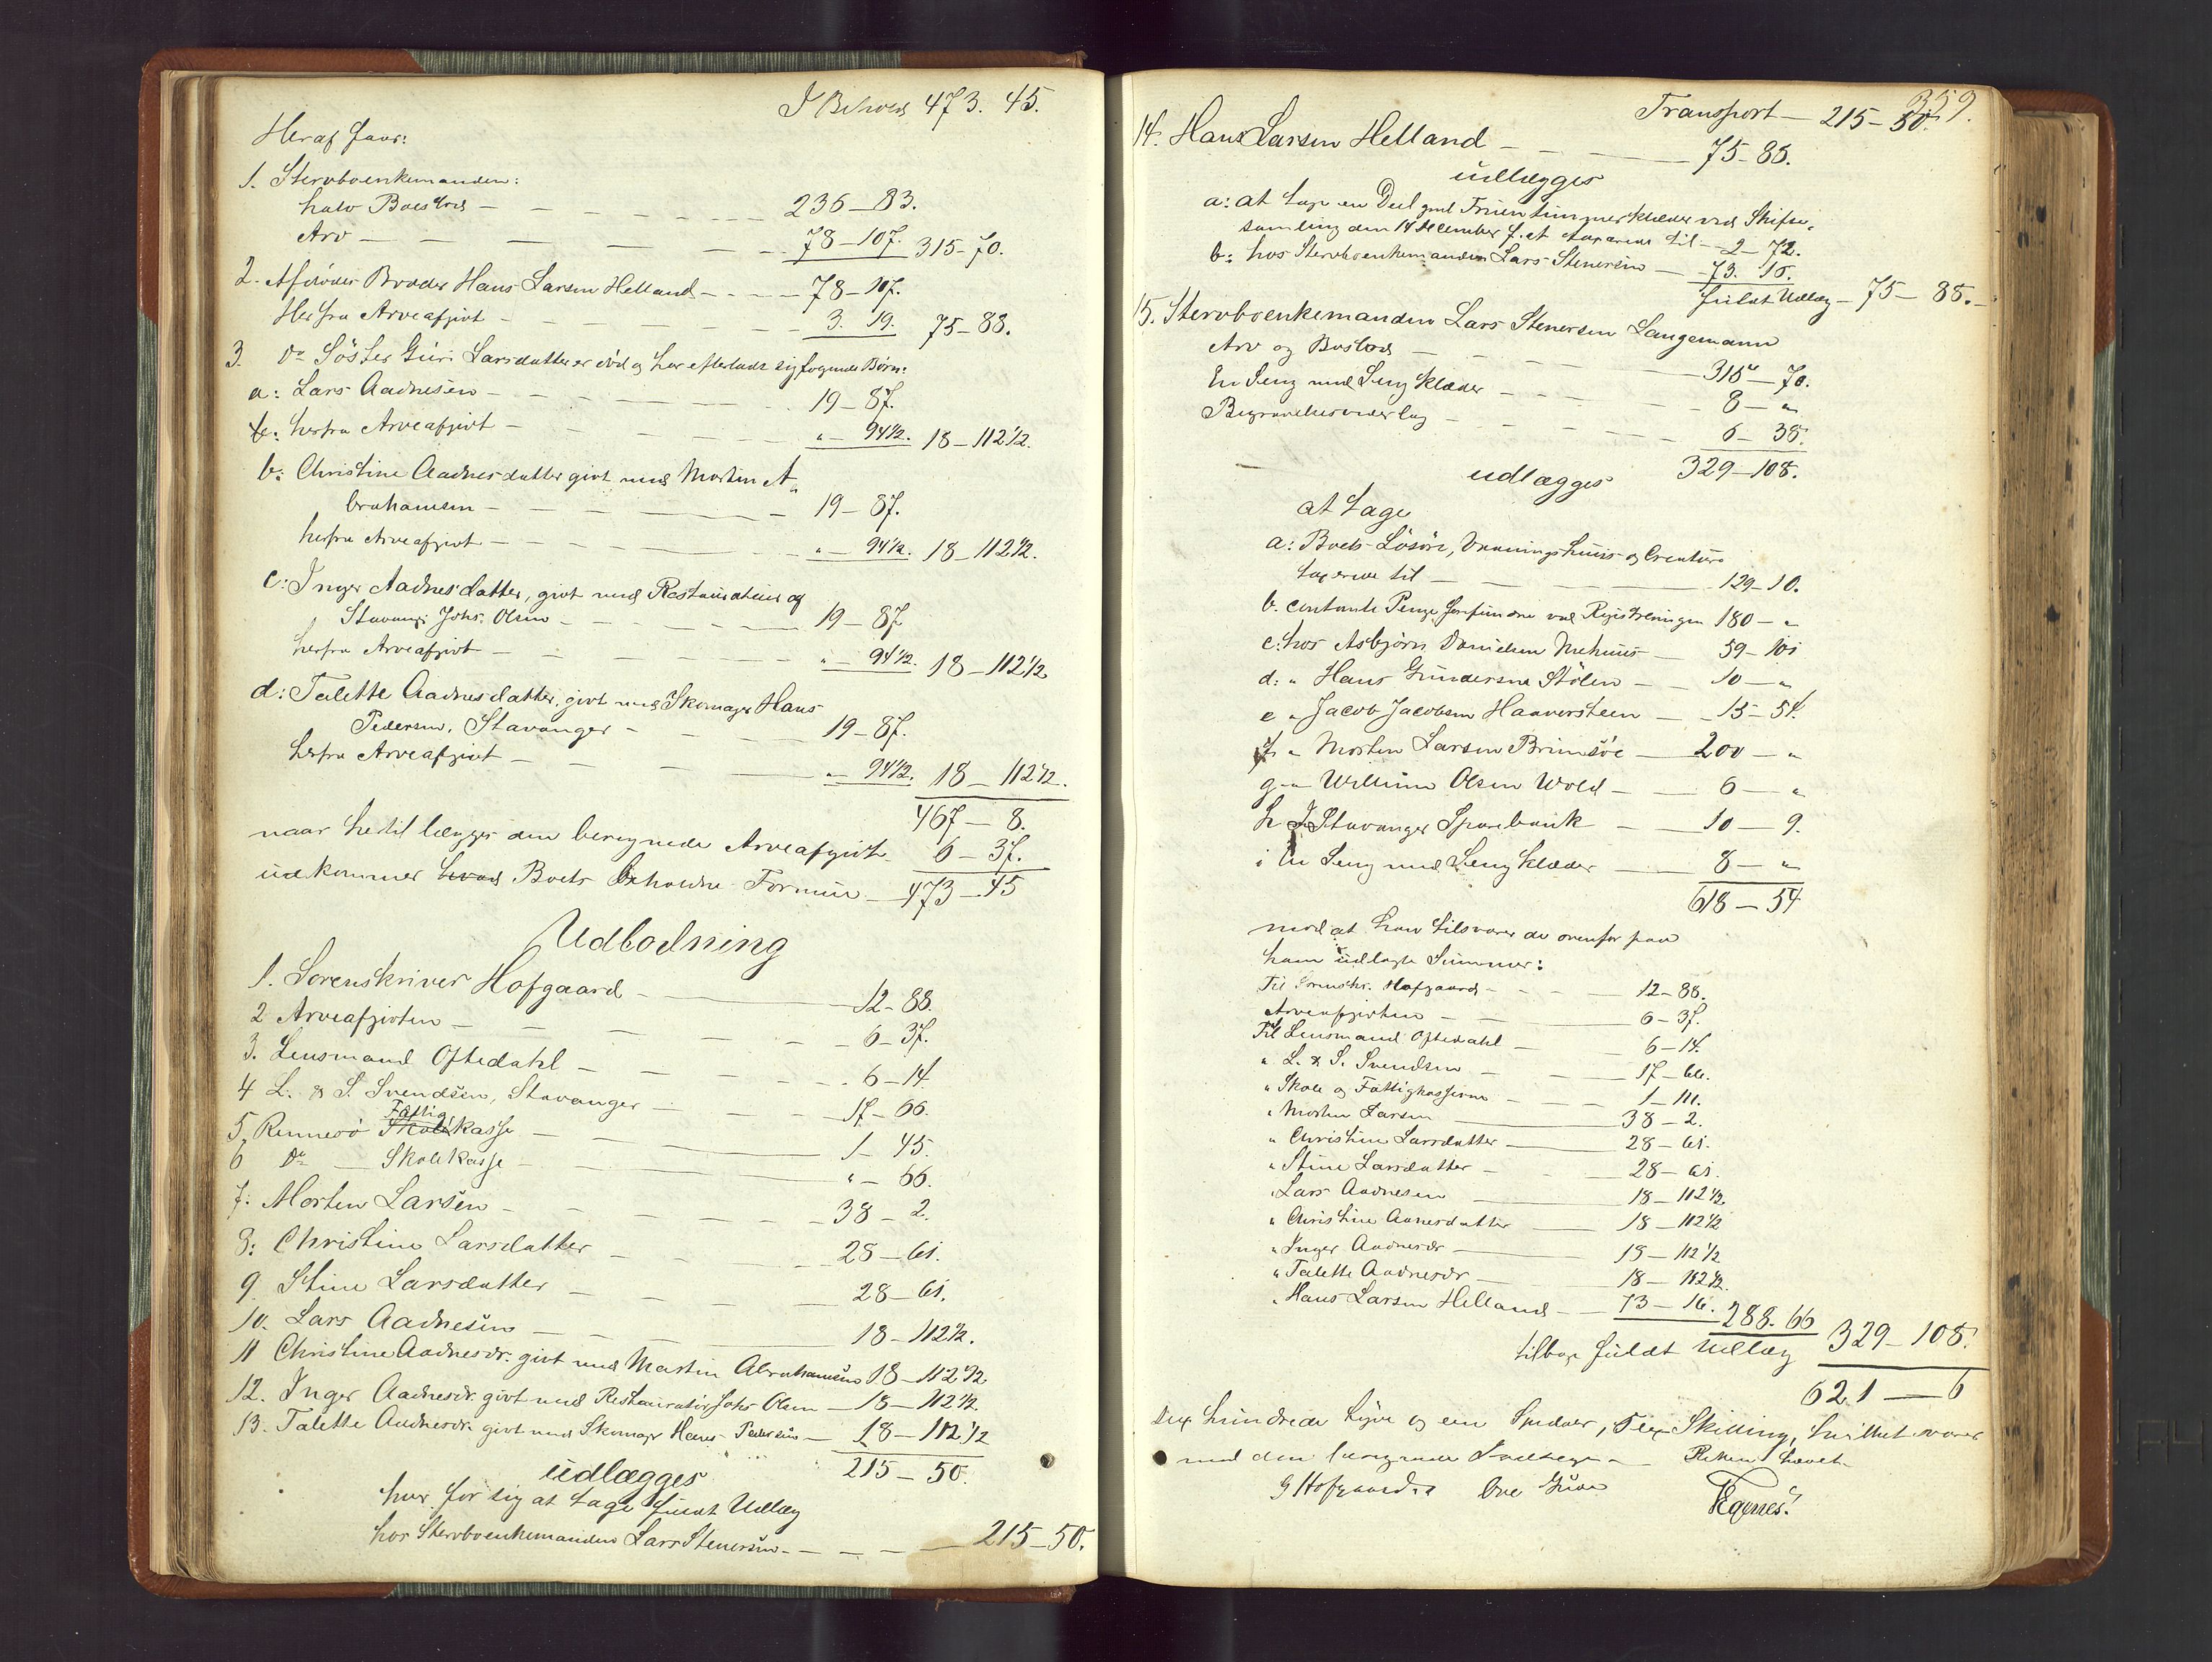 I Behold 473. 45.
Heraf faar:
1. Stervboenkemanden:
halv Boeslod — 236 — 83.
Arv — 78 — 107. 315 — 70.
2. Afdødes Broder Hans Larsen Helland — 78 — 107.
Herfra Arveafgivt — 3. 19. 75 — 88.
3. Do Søster Guri Larsdatter er død og har efterladt sig følgende Børn:
a: Lars Aadnesen — 19 — 87.
herfra Arveafgivt — " — 94½. 18 — 112½.
b: Christine Aadnesdatter givt med Morten A-
brahamsen — 19 — 87.
herfra Arveafgivt — " — 94½. 18 — 112½.
c: Inger Aadnesdatter, givt med Restaurateur og
Stavang: Johs. Olsen — 19 — 87
herfra Arveafgivt — " — 94½. 18 — 112½
d: Talette Aadnesdatter, givt med Skomager Hans
Pedersen, Stavanger — 19 — 87.
herfra Arveafgivt — " — 94½. 18 — 112½.
467 — 8.
naar hertil lægges den beregnede Arveafgivt 6 — 37.
udkommer Boets beholdne Formue — 473 — 45
Udlodning
1. Sorenskriver Hofgaard — 12 — 88.
2 Arveafgivten — 6 — 37.
3. Lensmand Oftedahl — 6 — 14.
4 L. & S. Svendsen, Stavanger — 17 — 66.
5. Rennesø Fattig kasse — 1 — 45.
6 Do — Skolekasse — " — 66.
7: Morten Larsen — 38 — 2.
8: Christine Larsdatter — 28 — 61.
9. Stine Larsdatter — 28 — 61.
10. Lars Aadnesen — 18 — 112½.
11 Christine Aadnesdr. givt med Martin Abrahamsen 18 — 112½
12. Inger Aadnesdr. givt med Restauratør Johs Olsen — 18 — 112½.
13. Talette Aadnesdr. givt med Skomager Hans Pedersen — 18 — 112½
215 — 50.
udlægges
hver for sig at tage fuldt Udlæg
hos Stervboenkemanden Lars Stenersen — 215 — 50.
359.
Transport — 215 — 50.
14. Hans Larsen Helland — 75 — 88.
udlægges
a: at tage en Deel gml Fruentimmerklæder ved Skifte-
samling den 14 December f. A. taxerede til — 2 — 72.
b: hos Stervboenkemanden Lars Stenersen — 73. 16.
fuldt Udlæg — 75 — 88.
15. Stervboenkemanden Lars Stenersen Langemann
Arv og Boslod — 315 — 70.
En Seng med Sengklæder — 8 — "
Begravelsesvederlag — 6 — 38.
329 — 108.
udlægges
at tage
a: Boets Løsøre, Vaaningshuus og Creature
taxerede til — 129 — 10.
b. contante Penge forefundne ved Registreringen 180 — "
c: hos Asbjørn Danielsen Mehuus — 59 — 101
d: " Hans Gundersen Stølen — 10 — "
e " Jacob Jacobsen Haaversteen — 15 — 54.
f " Morten Larsen Brimsøe — 200 — "
g " Willum Olsen Wold — 6 — "
h I Stavanger Sparebank — 10 — 9.
i En Seng med Sengklæder — 8 — "
618 — 54
mod at han tilsvarer de ovenfor paa
ham udlagte Summer:
Til Sorenskr. Hofgaard — 12 — 88.
Arveafgivten — 6 — 37.
Til Lensmand Oftedahl — 6 — 14.
" L. & S. Svendsen — 17 — 66.
" Skole og Fattigkasserne — 1 — 111.
" Morten Larsen — 38 — 2.
" Christine Larsdatter — 28 — 61.
" Stine Larsdatter — 28 — 61.
" Lars Aadnesen — 18 — 112½.
" Christine Aanesdatter — 18 — 112½
" Inger Aadnesdr — 18 — 112½
" Talette Aadnesdr — 18 — 112½.
" Hans Larsen Helland — 73 — 16. 288. 66
tilbage fuldt Udlæg 329 — 108.
621 — 6
Sex hundrede tyve og een Spedaler, Sex Skilling, hvilket svarer
med den beregnede Indtægt —
G Hofgaard
Egenes.